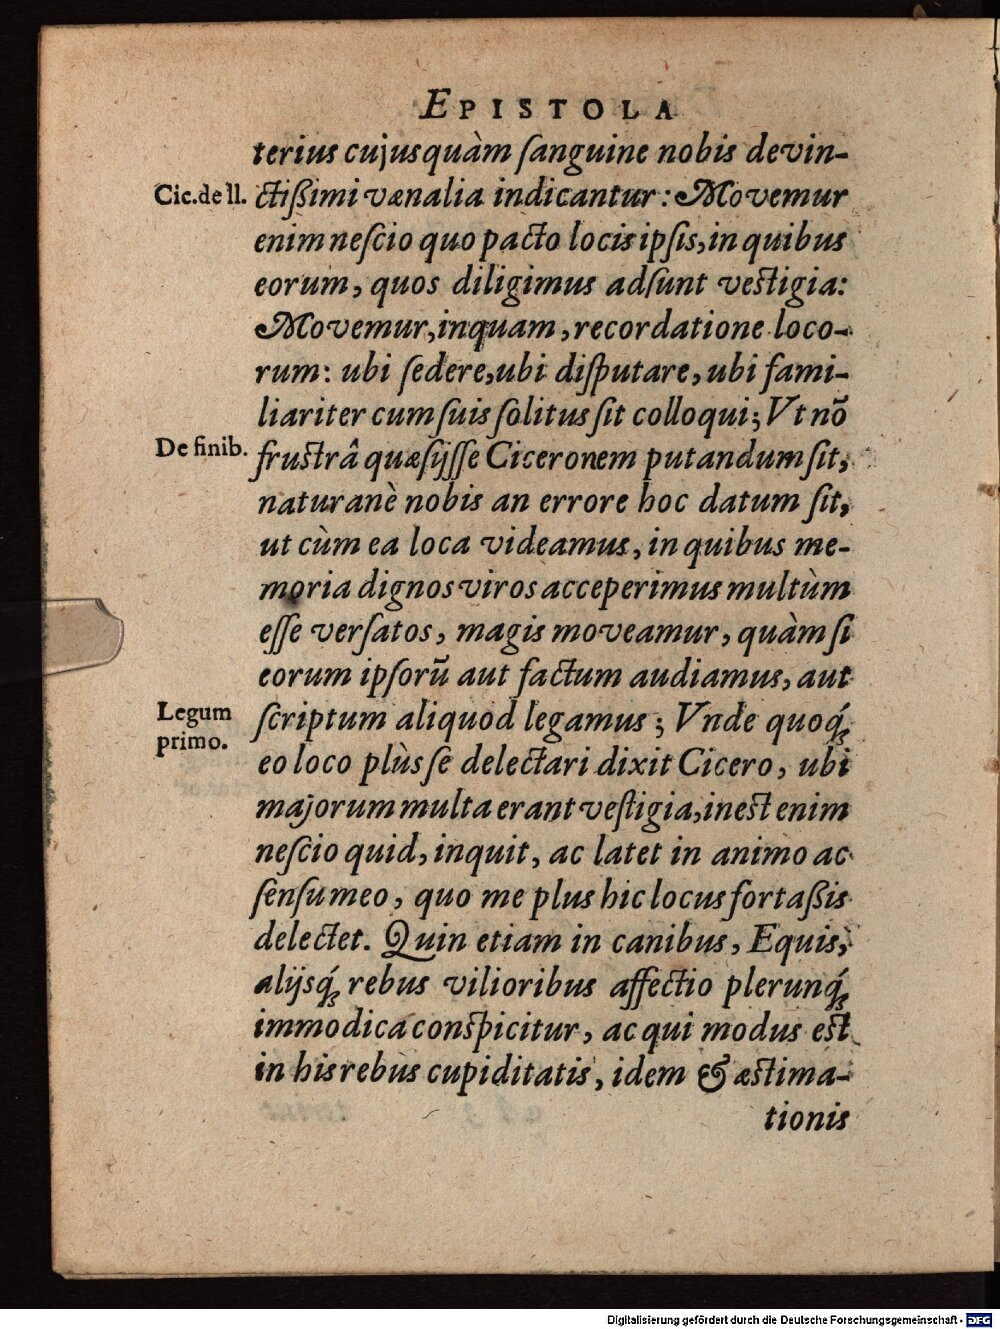 EPISTOLA
terius cujusquàm ſanguine nobis devin-
Cic. de ll. ctißimi vænalia indicantur: Movemur
enim neſcio quo pacto locis ipſis, in quibus
eorum, quos diligimus adſunt veſtigia:
Movemur, inquam, recordatione loco-
rum: ubi ſedere, ubi diſputare, ubi fami-
liariter cum ſuis ſolitus ſit colloqui; Vt nō
De finib. fruſtrâ quæſijſſe Ciceronem putandum ſit,
naturanè nobis an errore hoc datum ſit,
ut cùm ea loca videamus, in quibus me-
moria dignos viros acceperimus multùm
eſſe verſatos, magis moveamur, quàm ſi
eorum ipſorū aut factum audiamus, aut
Legum primo. ſcriptum aliquod legamus; Vnde quoq́;
eo loco plùs ſe delectari dixit Cicero, ubi
majorum multa erant veſtigia, ineſt enim
neſcio quid, inquit, ac latet in animo ac
ſenſu meo, quo me plus hic locus fortaßis
delectet. Quin etiam in canibus, Equis,
alijsq́; rebus vilioribus affectio plerunq́;
immodica conſpicitur, ac qui modus eſt
in his rebus cupiditatis, idem & æſtima-
tionis
Digitalisierung gefördert durch die Deutsche Forschungsgemeinschaft - DFG